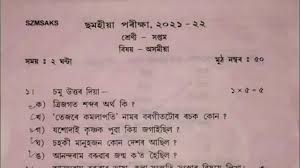 SZMSAKS
ছমহীয়া পৰীক্ষা, ২০২১-২২
শ্ৰেণী - সপ্তম
বিষয় - অসমীয়া
সময় : ২ ঘণ্টা মুঠ নম্বৰ : ৫০
১। চমু উত্তৰ দিয়া— ১×৫=৫
ক) ত্ৰিজগত শব্দৰ অৰ্থ কি ?
খ) 'তেজৰে কমলাপতি' নামৰ বৰগীতটোৰ ৰচক কোন ?
গ) যশোদাই কৃষ্ণক পুৱা কিয় জগাইছিল ?
ঘ) চহকী মানুহজন কোন দেশৰ আছিল ?
ঙ) আনন্দৰাম বৰুৱাৰ জন্ম ক'ত হৈছিল ?